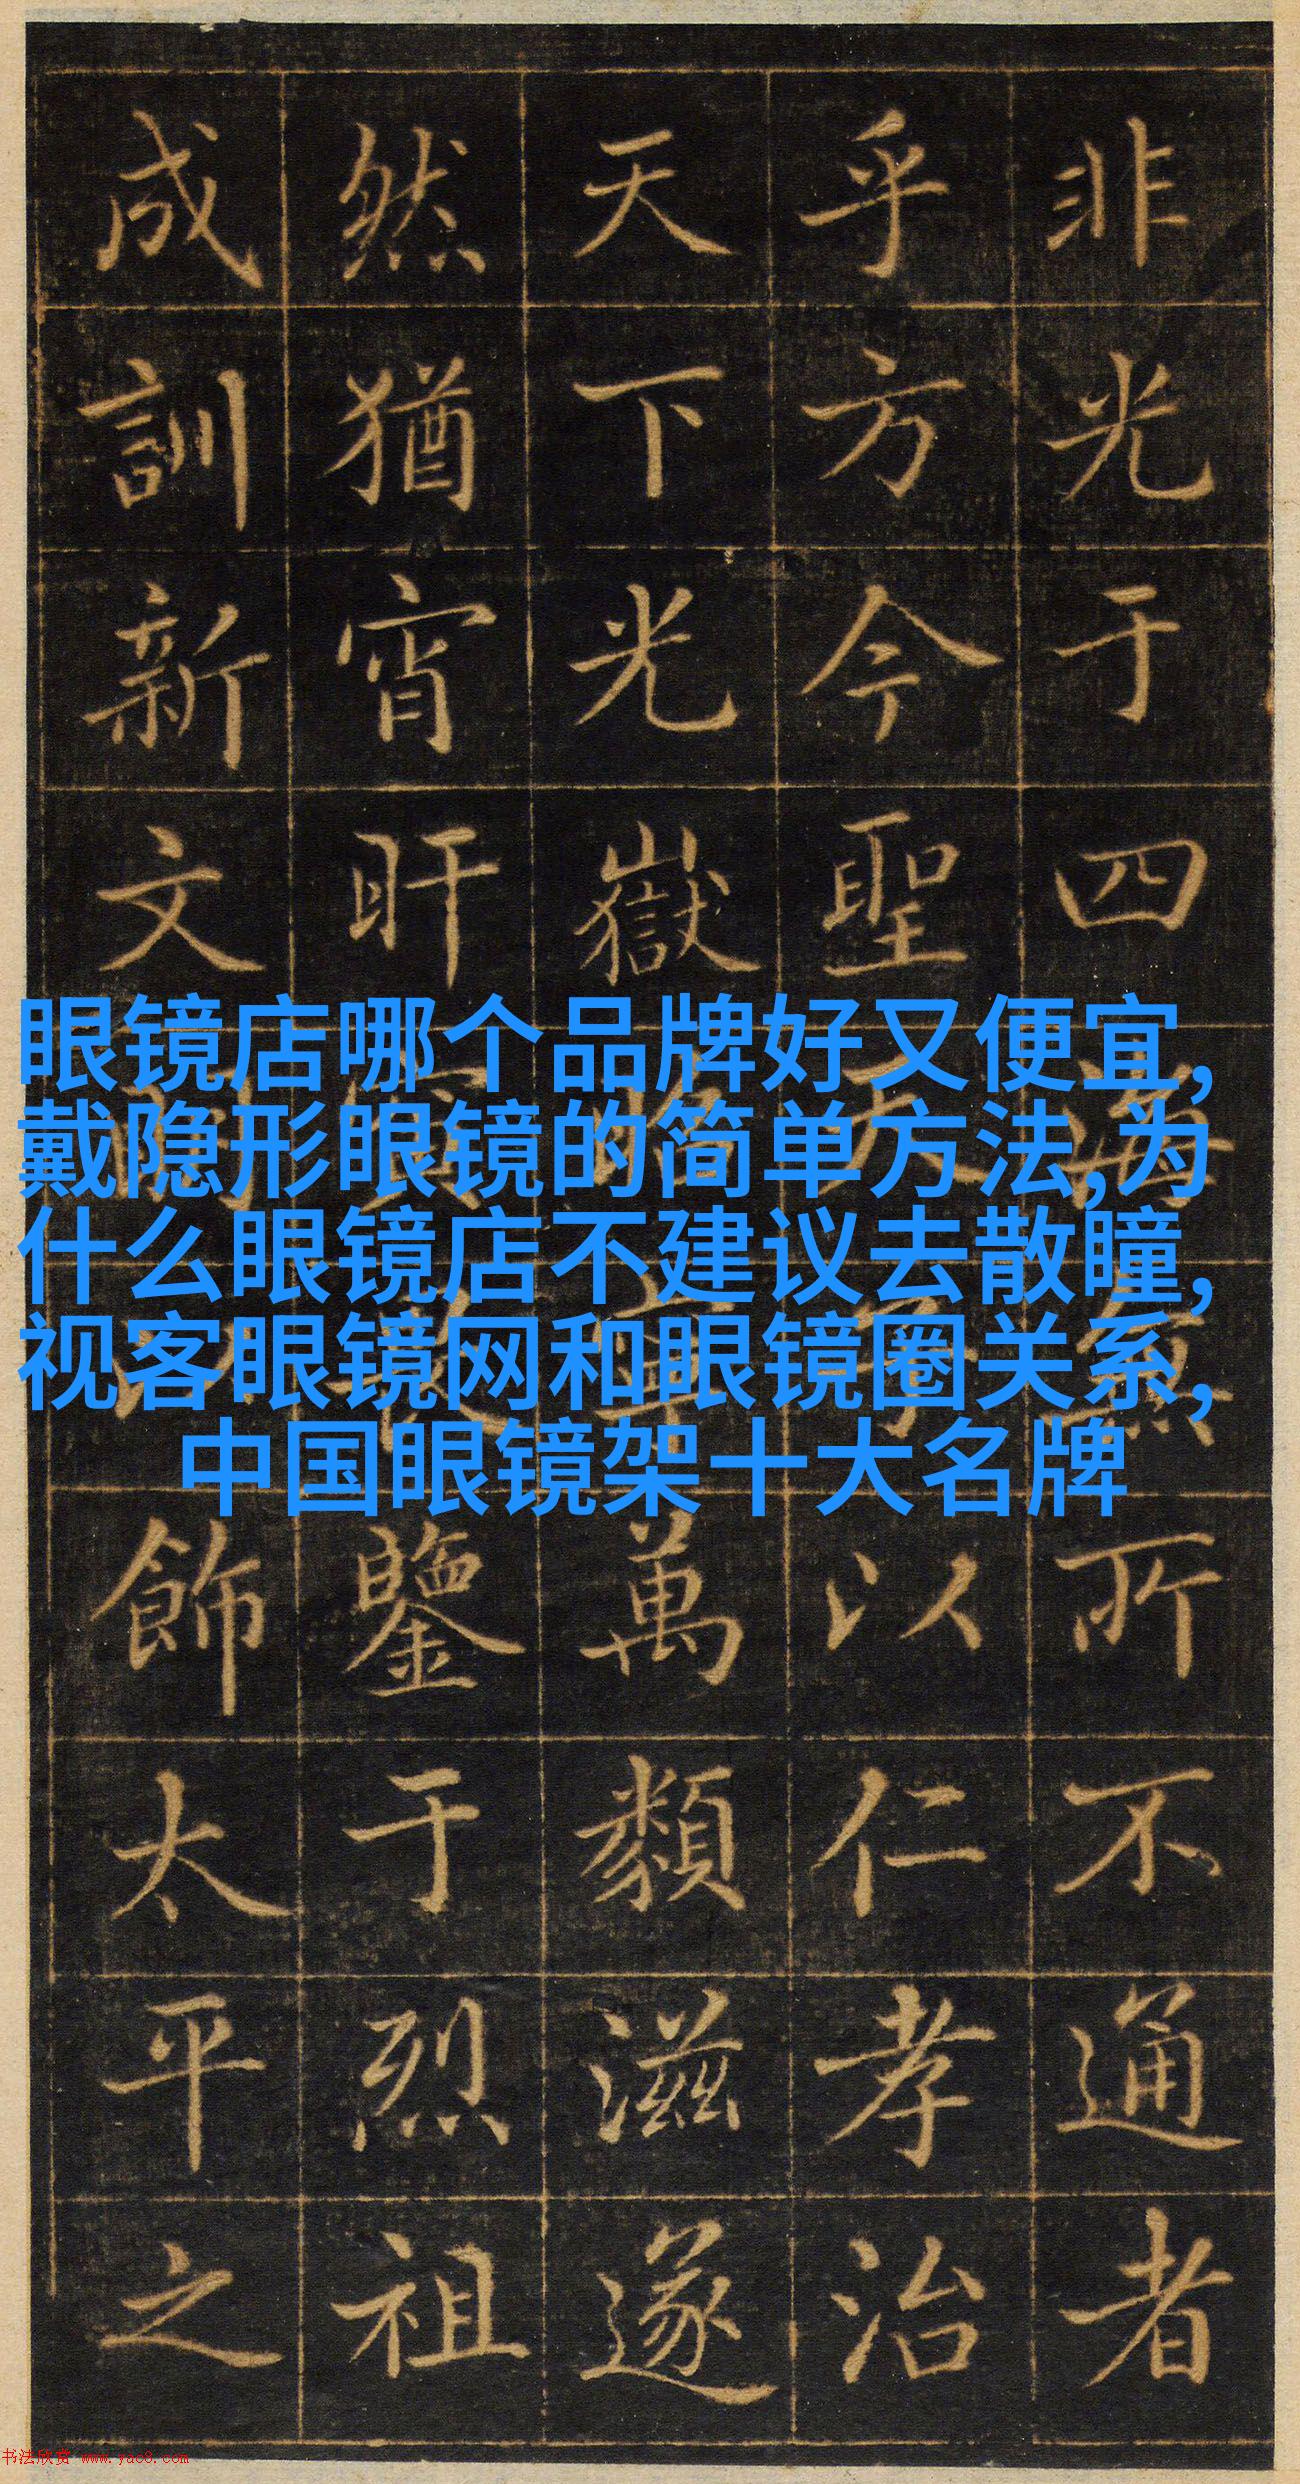 非光于四海無所不通者
乎方今聖天子以仁孝治
天下光嶽萬類滋遂
然猶宵旰鑒于烈祖
成訓新文飾太平之
眼镜店哪个品牌好又便宜,
戴隐形眼镜的简单方法,为
什么眼镜店不建议去散瞳,
视客眼镜网和眼镜圈关系,
中国眼镜架十大名牌
书法欣赏 www.yac8.com